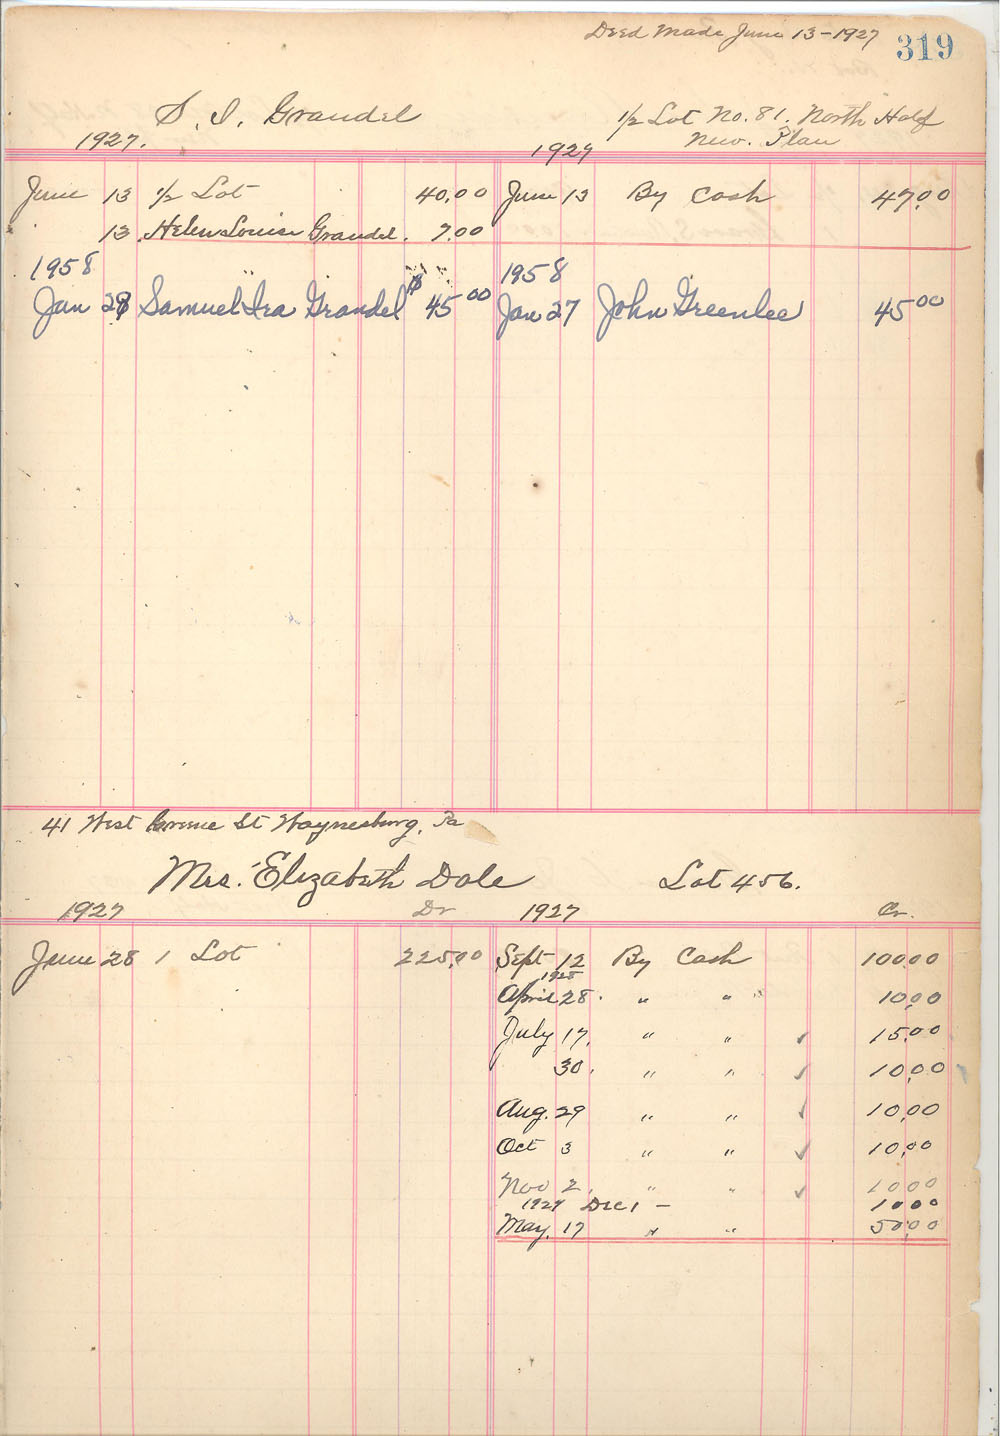 Deed Made June 13-1927 319
S. I. Grandel 1/2 Lot No. 81. North Half
New. Plan
1927. 1927
June 13 1/2 Lot 40.00 June 13 By Cash 47.00
13 Helen Louise Grandel. 7.00
1958 1958
Jan 28 Samuel Ira Grandel $45.00 Jan 27 John Greenlee 45.00
41 West Greene St Waynesburg, Pa
Mrs. Elizabeth Dole Lot 456.
1927 Dr 1927 Cr.
June 28 1 Lot 225.00 Sept 12 By Cash 100.00
1928
April 28. " " 10.00
July 17. " " ✓ 15.00
30. " " ✓ 10.00
Aug. 29 " " ✓ 10.00
Oct 3 " " ✓ 10.00
Nov 2. " " ✓ 10.00
1929 Dec 1 - 10.00
May. 17 " " 50.00